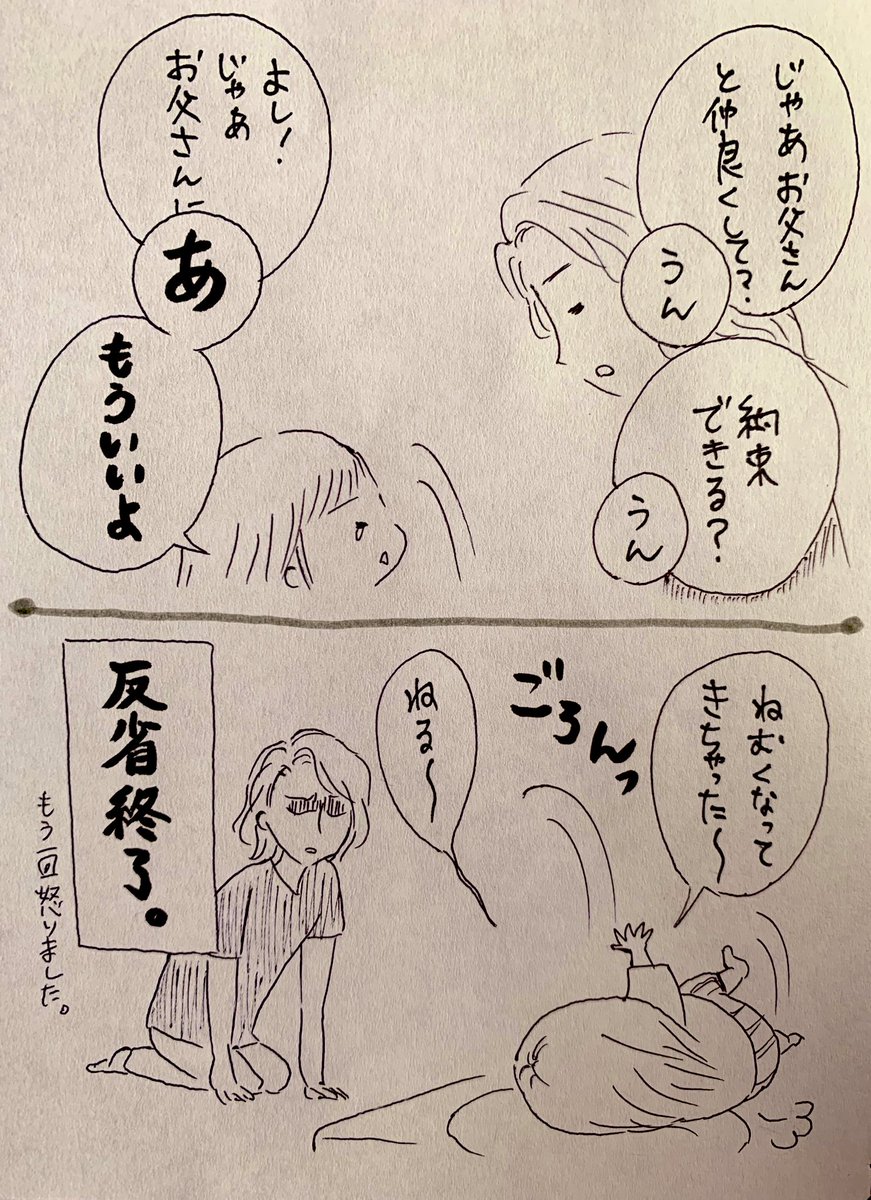 じゃあお父さん
と仲良くして?
うん
約束
できる?
うん
よし!
じゃあ
お父さんに
あ
もういいよ
ねむくなって
きちゃった〜
ごろんっ
ねる〜
反省終了。
もう一回怒りました。